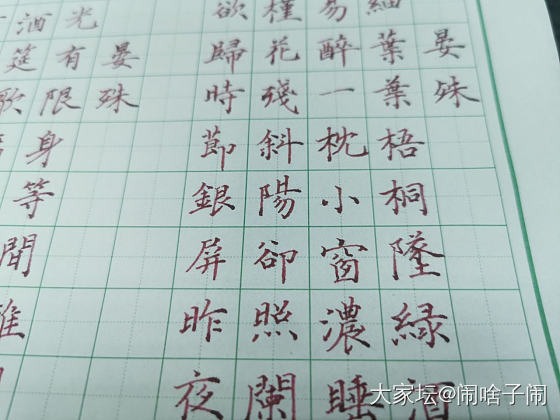 晏殊
細葉葉梧桐墜綠酒
易醉一枕小窗濃睡
槿花殘斜陽卻照闌
欲歸時節銀屏昨夜
晏殊
光有限身等閒
酒筵歌
大家坛@闹啥子闹